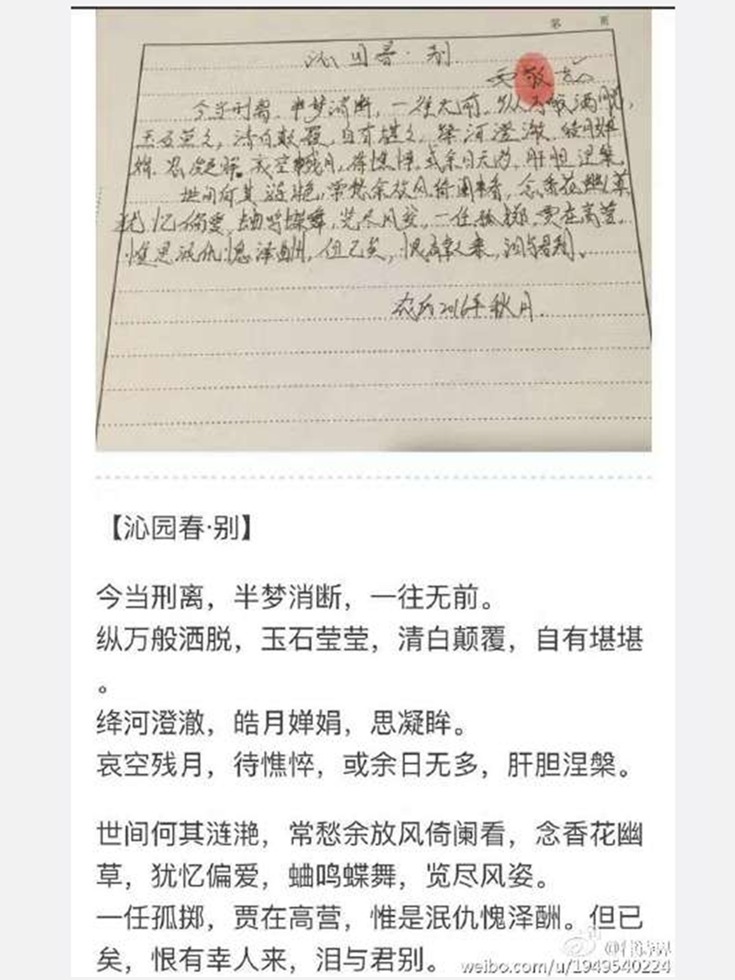 第 页
沁园春·别
今当刑离，半梦消断，一往无前，纵万般洒脱，
玉石莹莹，清白颠覆，自有堪堪，绛河澄澈，皓月婵
娟，思凝眸。哀空残月，待憔悴，或余日无多，肝胆涅槃。
世间何其涟滟，常愁余放风倚阑看，念香花幽草
犹忆偏爱，蛐鸣蝶舞，览尽风姿，一任孤掷，贾在高营，
惟是泯仇愧泽酬，但已矣，恨有幸人来，泪与君别。
秋月.
【沁园春·别】
今当刑离，半梦消断，一往无前。
纵万般洒脱，玉石莹莹，清白颠覆，自有堪堪
。
绛河澄澈，皓月婵娟，思凝眸。
哀空残月，待憔悴，或余日无多，肝胆涅槃。
世间何其涟滟，常愁余放风倚阑看，念香花幽
草，犹忆偏爱，蛐鸣蝶舞，览尽风姿。
一任孤掷，贾在高营，惟是泯仇愧泽酬。但已
矣，恨有幸人来，泪与君别。
weibo.com/u/1949540224